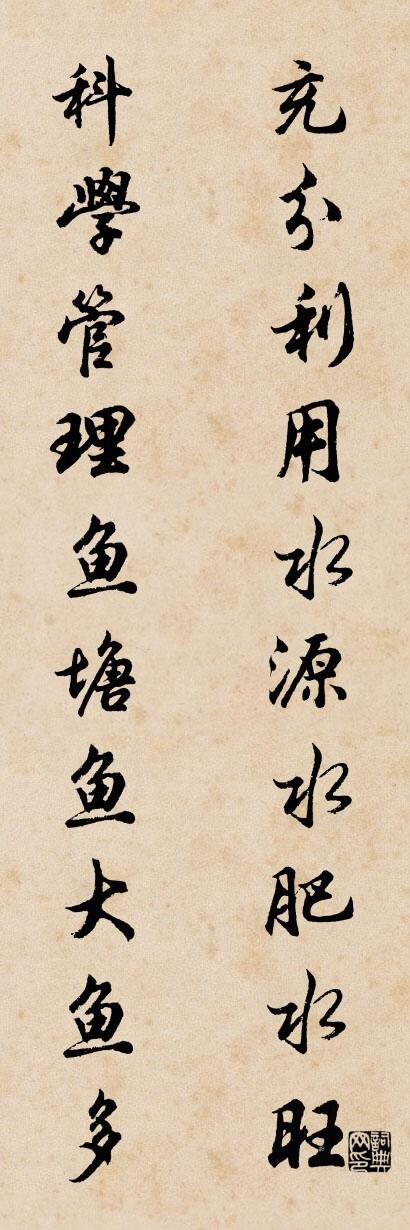 充分利用水源水肥水旺
科學管理鱼塘鱼大鱼多
詞典网印